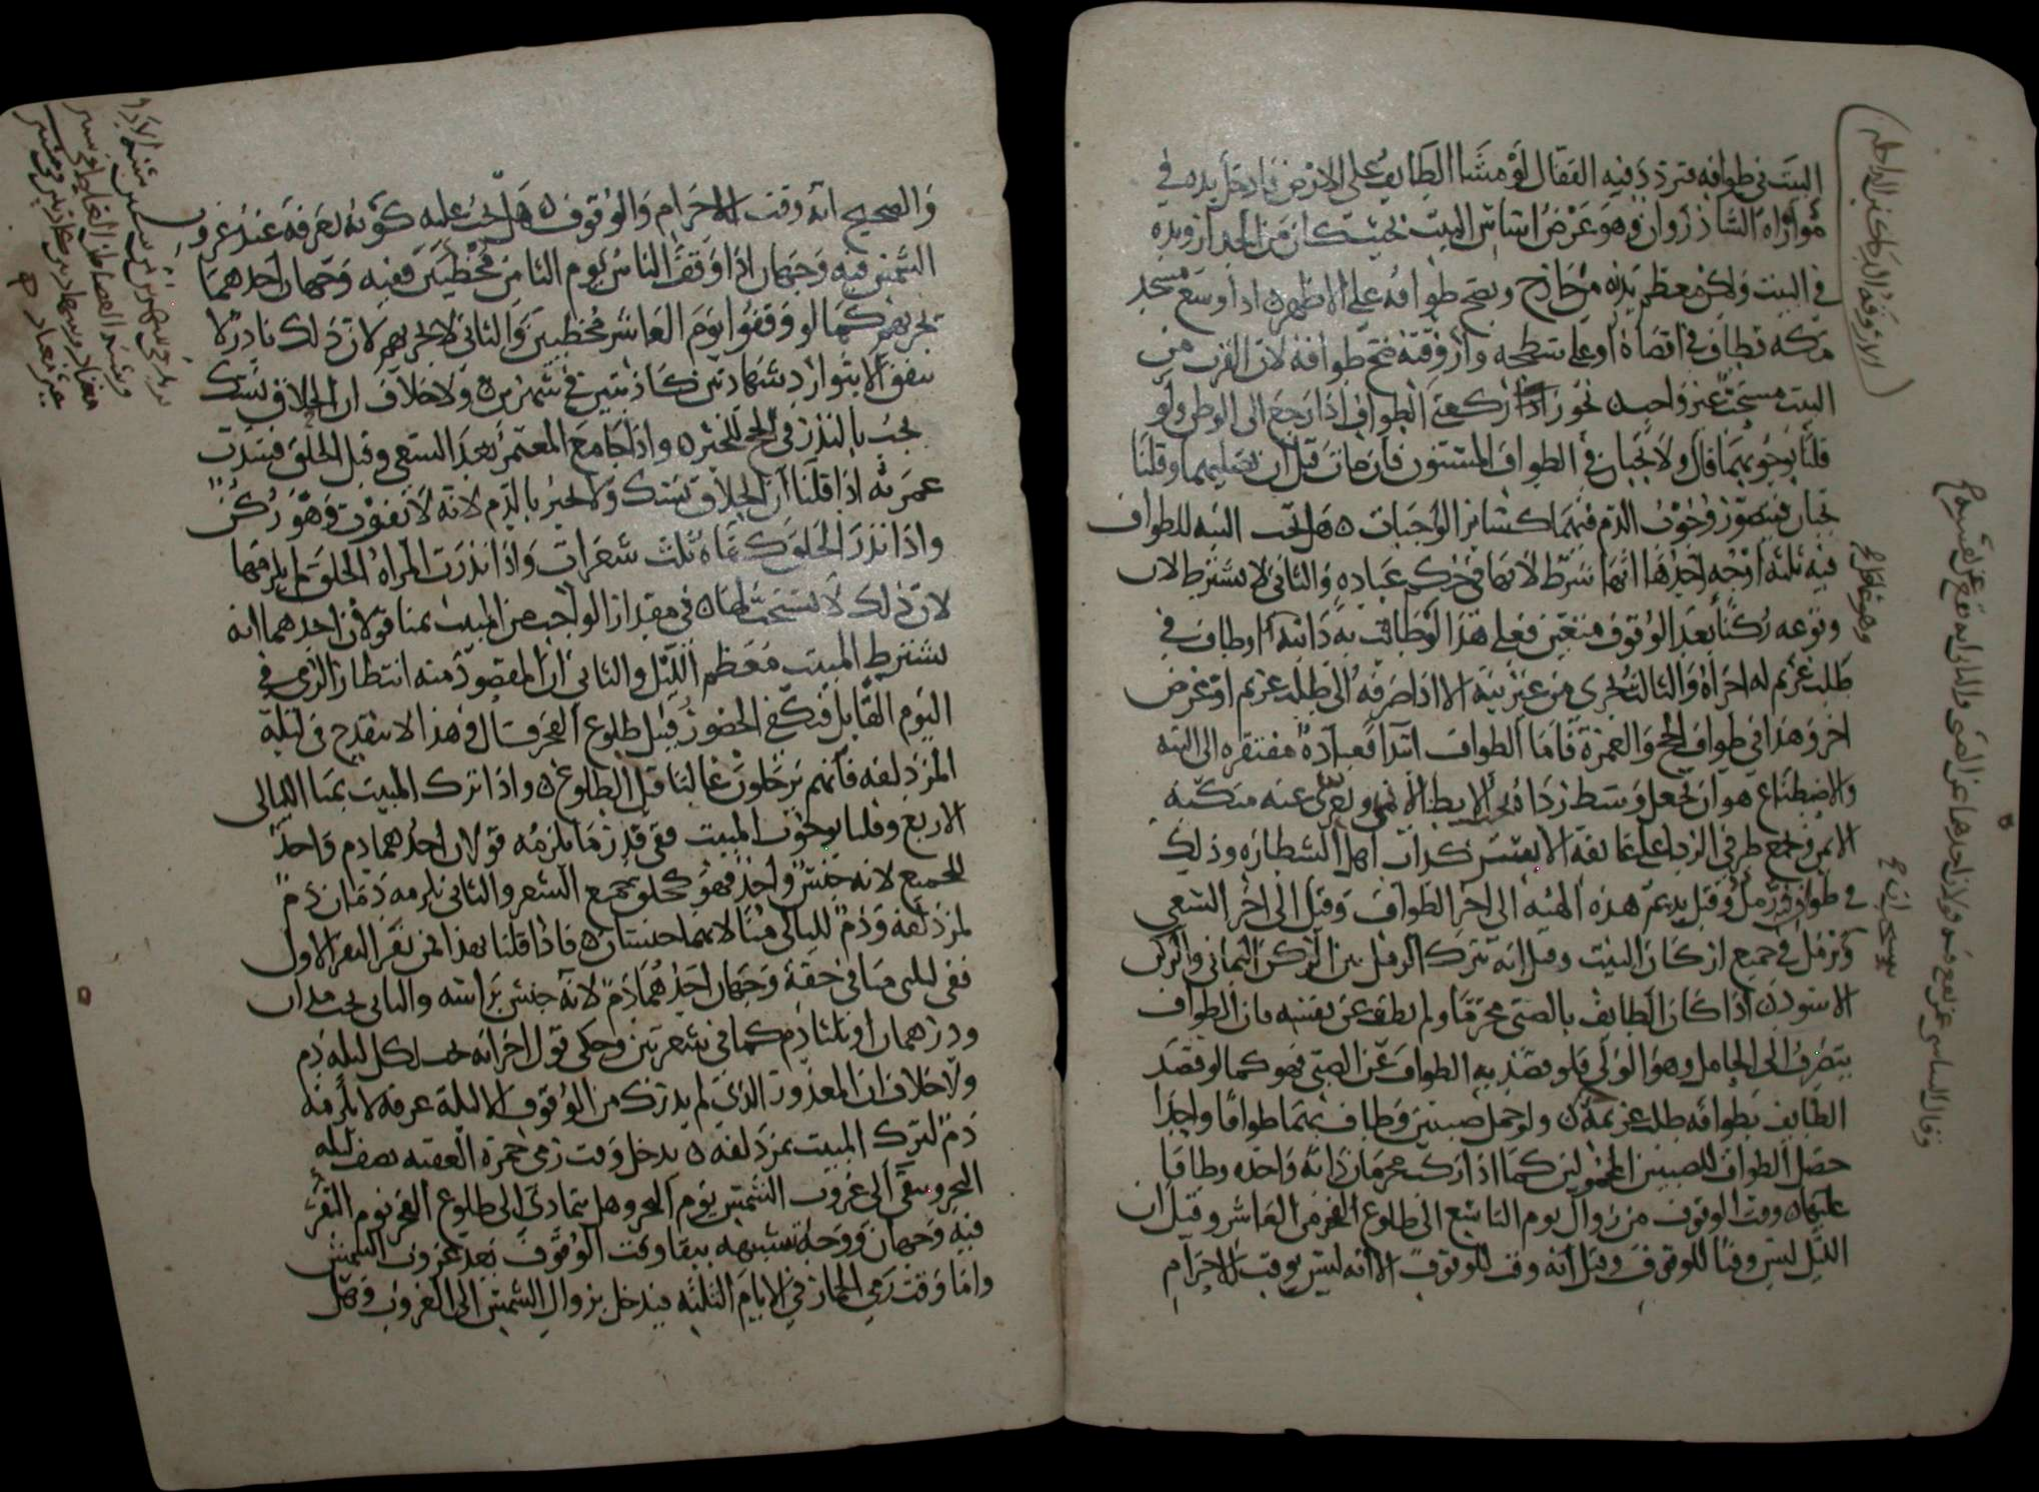 البيت في طوافه فتردد فيه القفال لو مشا الطايف على الارض فادخل يده في
موازاه الشاذروان وهو عرض اساس البيت بحيث كان من الجدار ويده
في البيت ولكن معظم بدنه من خارج ويصح طوافه على الاظهر اذا وسع مسجد
مكه فطاف في اقصاه او على سطحه واروقته صح طوافه لان القرب من
البيت مستحب غير واجب نحو اذا ركعتي الطواف اذا رجع الى الوطن ولو
قلنا بوجوبهما قال ولا يجبان في الطواف المسنون فان مات قبل ان يصليهما وقلنا
يجبان فيتصور وجوب الدم فيهما كسائر الواجبات هل تجب النيه للطواف
فيه ثلثه اوجه احدها انها شرط لانها في حكم عباده والثاني لا يشترط لان
وقوعه ركنا بعد الوقوف متعين فعلى هذا لو طافت به دابته او طاف في
طلب غريم له اجزاه والثالث يجزي من غير نيه الا اذا صرفه الى طلب غريم او غرض
اخر وهذا في طواف الحج والعمرة فاما الطواف ابتدا فعبادة مفتقره الى النيه
والاضطباع هو ان يجعل وسط رداه تحت الابط الايمن ويعرى عنه منكبه
الايمن ويجمع طرفي الردا على عاتقه الايسر كداب اهل الشطاره وذلك
في طواف فيه رمل وقيل يديم هذه الهيه الى اخر الطواف وقيل الى اخر السعي
ويرمل في جميع اركان البيت وقيل انه يترك الرمل بين الركن اليماني والركن
الاسود اذا كان الطايف بالصبي محرما ولم يطف عن نفسه فان الطواف
ينصرف الى الحامل وهو الولي فلو قصد به الطواف عن الصبي فهو كما لو قصد
الطايف بطوافه طلب غريمه ولو حمل صبيين وطاف بهما طوافا واحدا
حصل الطواف للصبيين المحمولين كما اذا ركب محرمان دابه واحده وطافا
عليها وقت الوقوف من زوال يوم التاسع الى طلوع الفجر من العاشر وقيل ان
الليل ليس وقتا للوقوف وقيل انه وقت للوقوف الا انه ليس بوقت للاحرام
والصحيح انه وقت الاحرام والوقوف هل يجب عليه كونه بعرفة عند غروب
الشمس فيه وجهان اذا وقف الناس يوم الثامن مخطيين ففيه وجهان احدهما
يجزيهم كما لو وقفوا يوم العاشر مخطيين والثاني لا يجزيهم لان ذلك نادر لا
يتفق الا بتوارد شهادتين كاذبتين في شهرين ولا خلاف ان الحلاق نسك
يجب بالنذر في الحج واذا جامع المعتمر بعد السعي وقبل الحلق فسدت
عمرته اذا قلنا ان الحلاق نسك ولا يجبر بالدم لانه لا يفوت وهو ركن
واذا نذر الحلق كفاه ثلث شعرات واذا نذرت المراه الحلق لم يلزمها
لان ذلك لا يستحب لها في مقدار الواجب من المبيت بمنا قولان احدهما انه
يشترط المبيت معظم الليل والثاني ان المقصود منه انتظار الرمي في
اليوم القابل فيكفي الحضور قبل طلوع الفجر قال وهذا لا ينقدح في ليلة
المزدلفه فانهم يرحلون غالبا قبل الطلوع واذا ترك المبيت بمنا الليالي
الاربع وقلنا بوجوب المبيت ففي قدر ما يلزمه قولان احدهما دم واحد
للجميع لانه جنس واحد فهو كحلق جميع الشعر والثاني يلزمه دمان دم
لمزدلفه ودم لليالي منا لانهما جنسان فاذا قلنا بهذا فمن نفر النفر الاول
ففي ليلتي منا في حقه وجهان احدهما دم لانه جنس براسه والثاني يجب مدان
ودرهمان او ثلثا دم كما في شعرتين وحكى قول اخر انه يجب لكل ليله دم
ولا خلاف ان المعذور الذي لم يدرك من الوقوف الا ليلة عرفه لا يلزمه
دم لترك المبيت بمزدلفه يدخل وقت رمي جمرة العقبه بنصف ليله
النحر ويبقى الى غروب الشمس يوم النحر وهل يتمادى الى طلوع الفجر يوم النفر
فيه وجهان ووجه تشبيهه ببقا وقت الوقوف بعد غروب الشمس
واما وقت رمي الجمار في الايام الثلثه فيدخل بزوال الشمس الى الغروب وهل